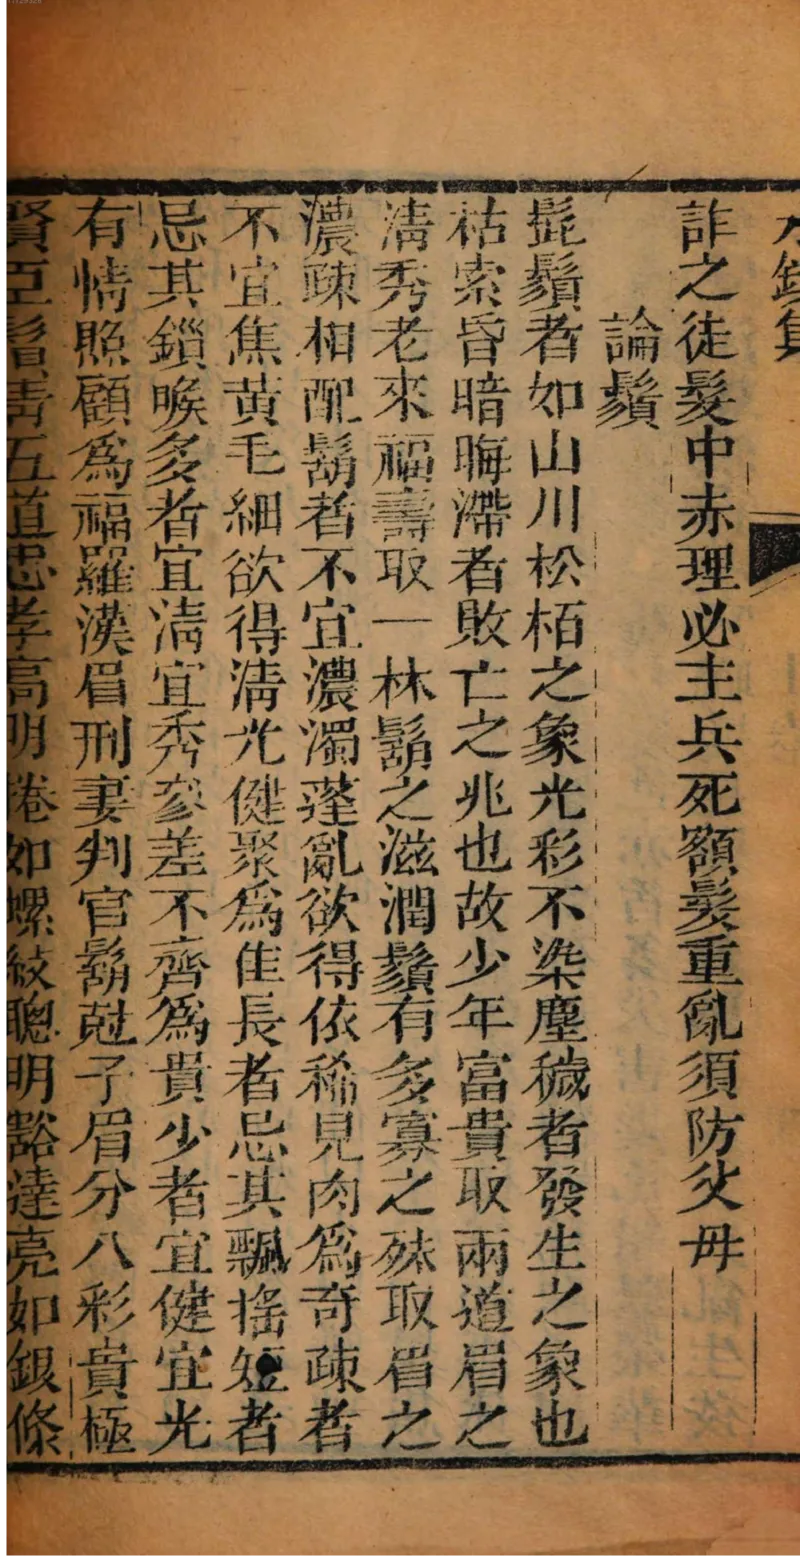 水鏡集
詐之徒髮中赤理必主兵死額髮重亂須防父母
論鬚
髭鬚者如山川松栢之象光彩不染塵穢者發生之象也
枯索昏暗晦滯者敗亡之兆也故少年富貴取兩道眉之
淸秀老來福壽取一林鬍之滋潤鬚有多寡之殊取眉之
濃疎相配鬍者不宜濃濁蓬亂欲得依稀見肉爲奇疎者
不宜焦黃毛細欲得淸光健聚爲佳長者忌其飄搖短者
忌其鎖喉多者宜淸宜秀參差不齊爲貴少者宜健宜光
有情照顧爲福羅漢眉刑妻判官鬍尅子眉分八彩貴極
賢臣鬚青五道忠孝高明卷如螺紋聰明豁達亮如銀條